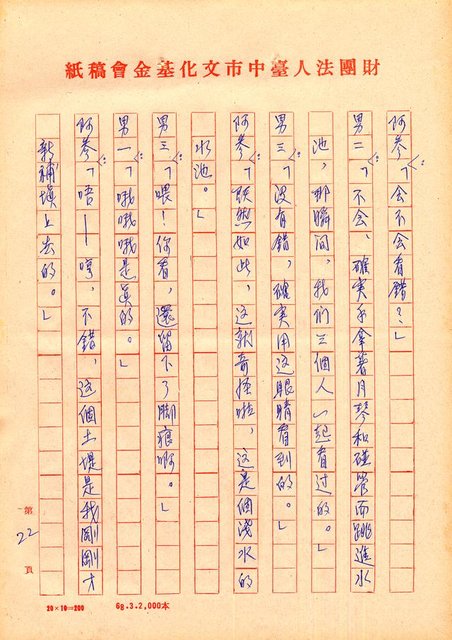 財團法人臺中市文化基金會稿紙
阿參:「会不会有錯?」
男二:「不会、確実手拿著月琴和碰管而跳進水
池,那瞬间,我们三個人一起看过的。」
男三:「没有錯,確実用这眼睛看到的。」
阿參:「既然如此,这就奇怪啦,这是個浅水的
水池。」
男三:「喂!你看,還留下了脚痕啊。」
男一:「哦哦哦是真的。」
阿參:「唔——哼,不錯,这個土堤是我剛剛才
新補填上去的。」
第22頁
20×10=200
68.3.2,000本